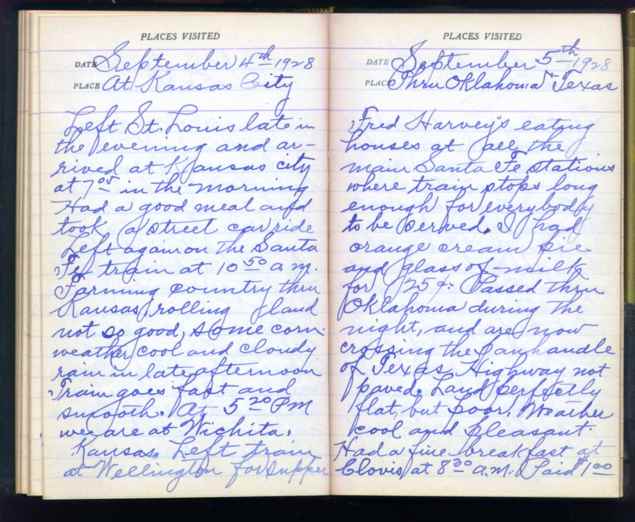 PLACES VISITED
DATE September 4th 1928
PLACE At Kansas City
Left St. Louis late in
the evening and ar-
rived at Kansas city
at 7 05 in the morning
Had a good meal and
took a street car ride
Left again on the Santa
Fe train at 10 50 a m.
Farming country thru
Kansas, rolling land
not so good, some corn
weather cool and cloudy
rain in late afternoon
Train goes fast and
smooth. At 5 20 PM
we are at Wichita,
Kansas. Left train
at Wellington for supper
PLACES VISITED
DATE September 5th 1928
PLACE Thru Oklahoma & Texas
Fred Harvey's eating
houses at all the
main Santa Fe stations
where train stops long
enough for everybody
to be served. I had
orange cream pie
and glass of milk
for 25¢. Passed thru
Oklahoma during the
night, and are now
crossing the panhandle
of Texas. Highway not
paved. Land perfectly
flat, but poor. Weather
cool and pleasant.
Had a fine breakfast at
Clovis at 8 30 a.m. Paid $1 00